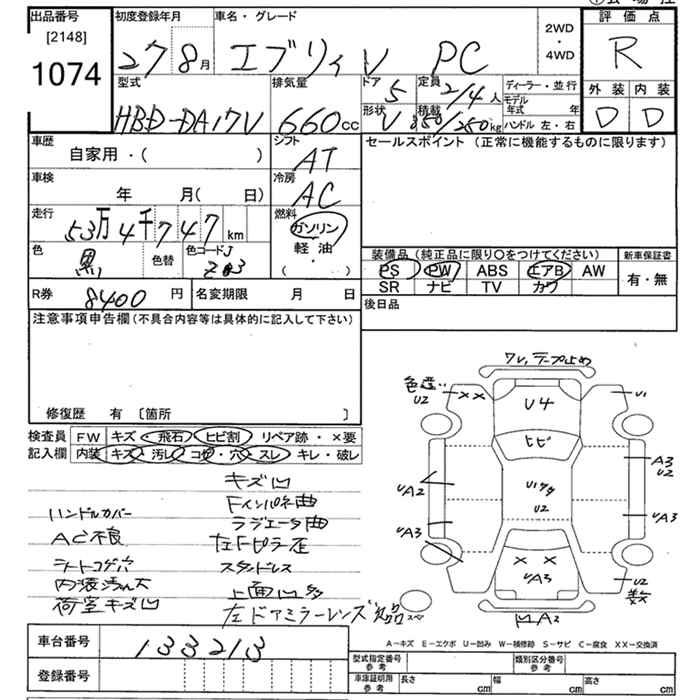 出品番号
[2148]
1074
初度登録年月
27 8月
車名・グレード
エブリィ V PC
2WD
・
4WD
評価点
R
型式
HBD-DA17V
排気量
660cc
ドア
5
定員
2/4人
ディーラー・並行
モデル年式 年
形状
V
積載
350/250kg
ハンドル 左・右
外装 内装
D D
車歴
自家用・( )
シフト
AT
セールスポイント (正常に機能するものに限ります)
車検
年 月( 日)
冷房
AC
走行
53万4千747km
燃料
ガソリン
軽油
( ・ )
色
黒
色替
色コード
ZJ3
装備品 (純正品に限り○をつけてください)
新車保証書
PS PW ABS エアB AW
SR ナビ TV カワ
有・無
R券
8400円
名変期限 月 日
後日品
注意事項申告欄(不具合内容等は具体的に記入して下さい)
修復歴 有 〔箇所 〕
検査員
記入欄
FW キズ・飛石・ヒビ割 リペア跡・×要
内装 キズ・汚レ コゲ・穴・スレ・キレ・破レ
キズ凹
Fインパネ曲
ハンドルカバー
ラジエータ曲
AC不良
左Fピラー歪
シートコゲ穴
スタンドレス
内張汚れ大
上面凹多
荷室キズ凹
左ドアミラーレンズ
ワレ、テープ止め
色違い
U2
××
U4
U1
ヒビ
A3
U2
UA2
U1多
U2
UA3
UA3
× ×
UA3
U2
数
凹A2
スペ
車台番号
133213
登録番号
A－キズ E－エクボ U－凹み W－補修跡 S－サビ C－腐食 XX－交換済
型式指定番号
参考
類別区分番号
参考
車庫証明用
参考
長さ cm
幅 cm
高さ cm